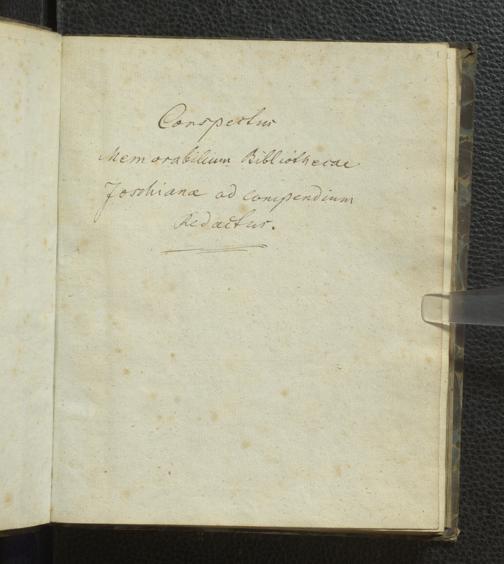 Conspectus
Memorabilium Bibliothecae
Joschianæ ad compendium
Redactus.